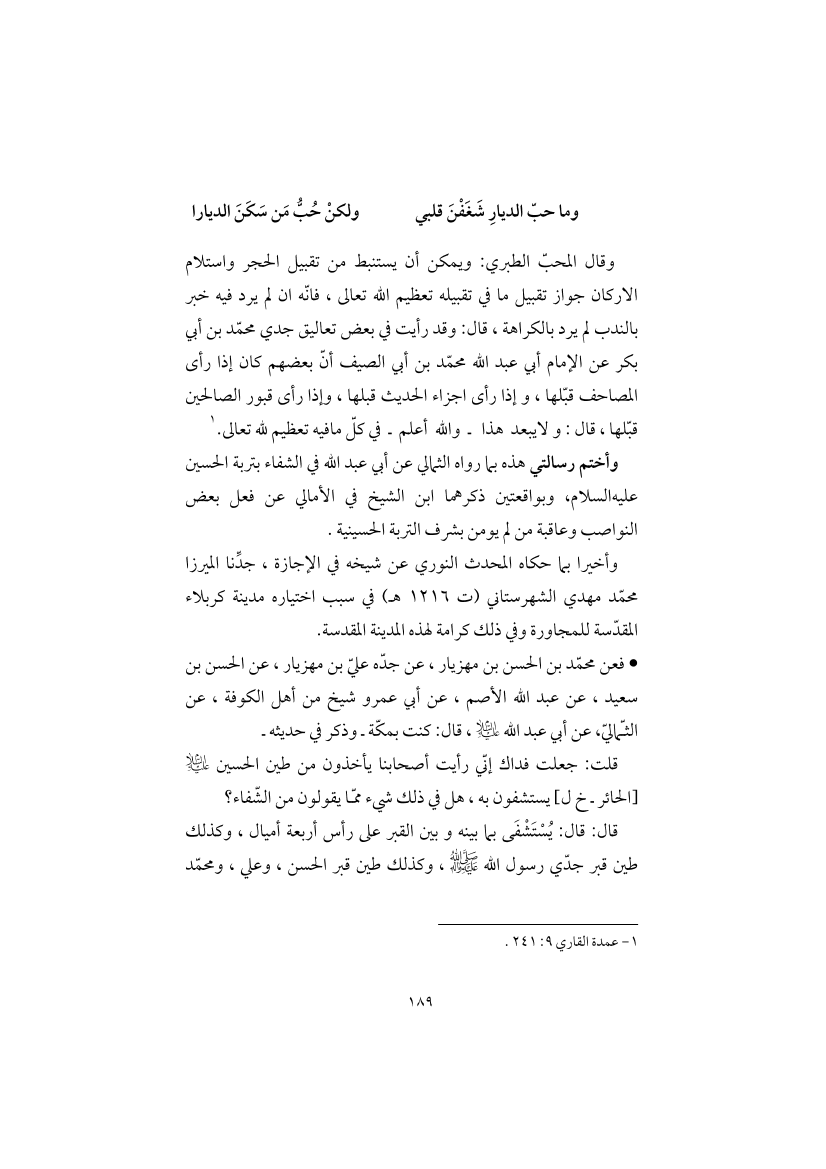 وما حبّ الديارِ شَغَفْنَ قلبي ولكنْ حُبُّ مَن سَكَنَ الديارا
وقال المحبّ الطبري: ويمكن أن يستنبط من تقبيل الحجر واستلام
الاركان جواز تقبيل ما في تقبيله تعظيم الله تعالى ، فانّه ان لم يرد فيه خبر
بالندب لم يرد بالكراهة ، قال: وقد رأيت في بعض تعاليق جدي محمّد بن أبي
بكر عن الإمام أبي عبد الله محمّد بن أبي الصيف أنّ بعضهم كان إذا رأى
المصاحف قبّلها ، و إذا رأى اجزاء الحديث قبلها ، وإذا رأى قبور الصالحين
قبّلها ، قال : و لايبعد هذا ـ والله أعلم ـ في كلّ مافيه تعظيم لله تعالى.١
وأختم رسالتي هذه بما رواه الثمالي عن أبي عبد الله في الشفاء بتربة الحسين
عليه‌السلام، وبواقعتين ذكرهما ابن الشيخ في الأمالي عن فعل بعض
النواصب وعاقبة من لم يومن بشرف التربة الحسينية .
وأخيرا بما حكاه المحدث النوري عن شيخه في الإجازة ، جدِّنا الميرزا
محمّد مهدي الشهرستاني (ت ١٢١٦ هـ) في سبب اختياره مدينة كربلاء
المقدّسة للمجاورة وفي ذلك كرامة لهذه المدينة المقدسة.
• فعن محمّد بن الحسن بن مهزيار ، عن جدّه عليّ بن مهزيار ، عن الحسن بن
سعيد ، عن عبد الله الأصم ، عن أبي عمرو شيخ من أهل الكوفة ، عن
الثّماليّ، عن أبي عبد الله عليه‌السلام ، قال: كنت بمكّة ـ وذكر في حديثه ـ
قلت: جعلت فداك إنّي رأيت أصحابنا يأخذون من طين الحسين عليه‌السلام
[الحائر ـ خ ل] يستشفون به ، هل في ذلك شيء ممّا يقولون من الشّفاء؟
قال: قال: يُسْتَشْفَى بما بينه و بين القبر على رأس أربعة أميال ، وكذلك
طين قبر جدّي رسول الله ﷺ ، وكذلك طين قبر الحسن ، وعلي ، ومحمّد
١– عمدة القاري ٩: ٢٤١ .
١٨٩